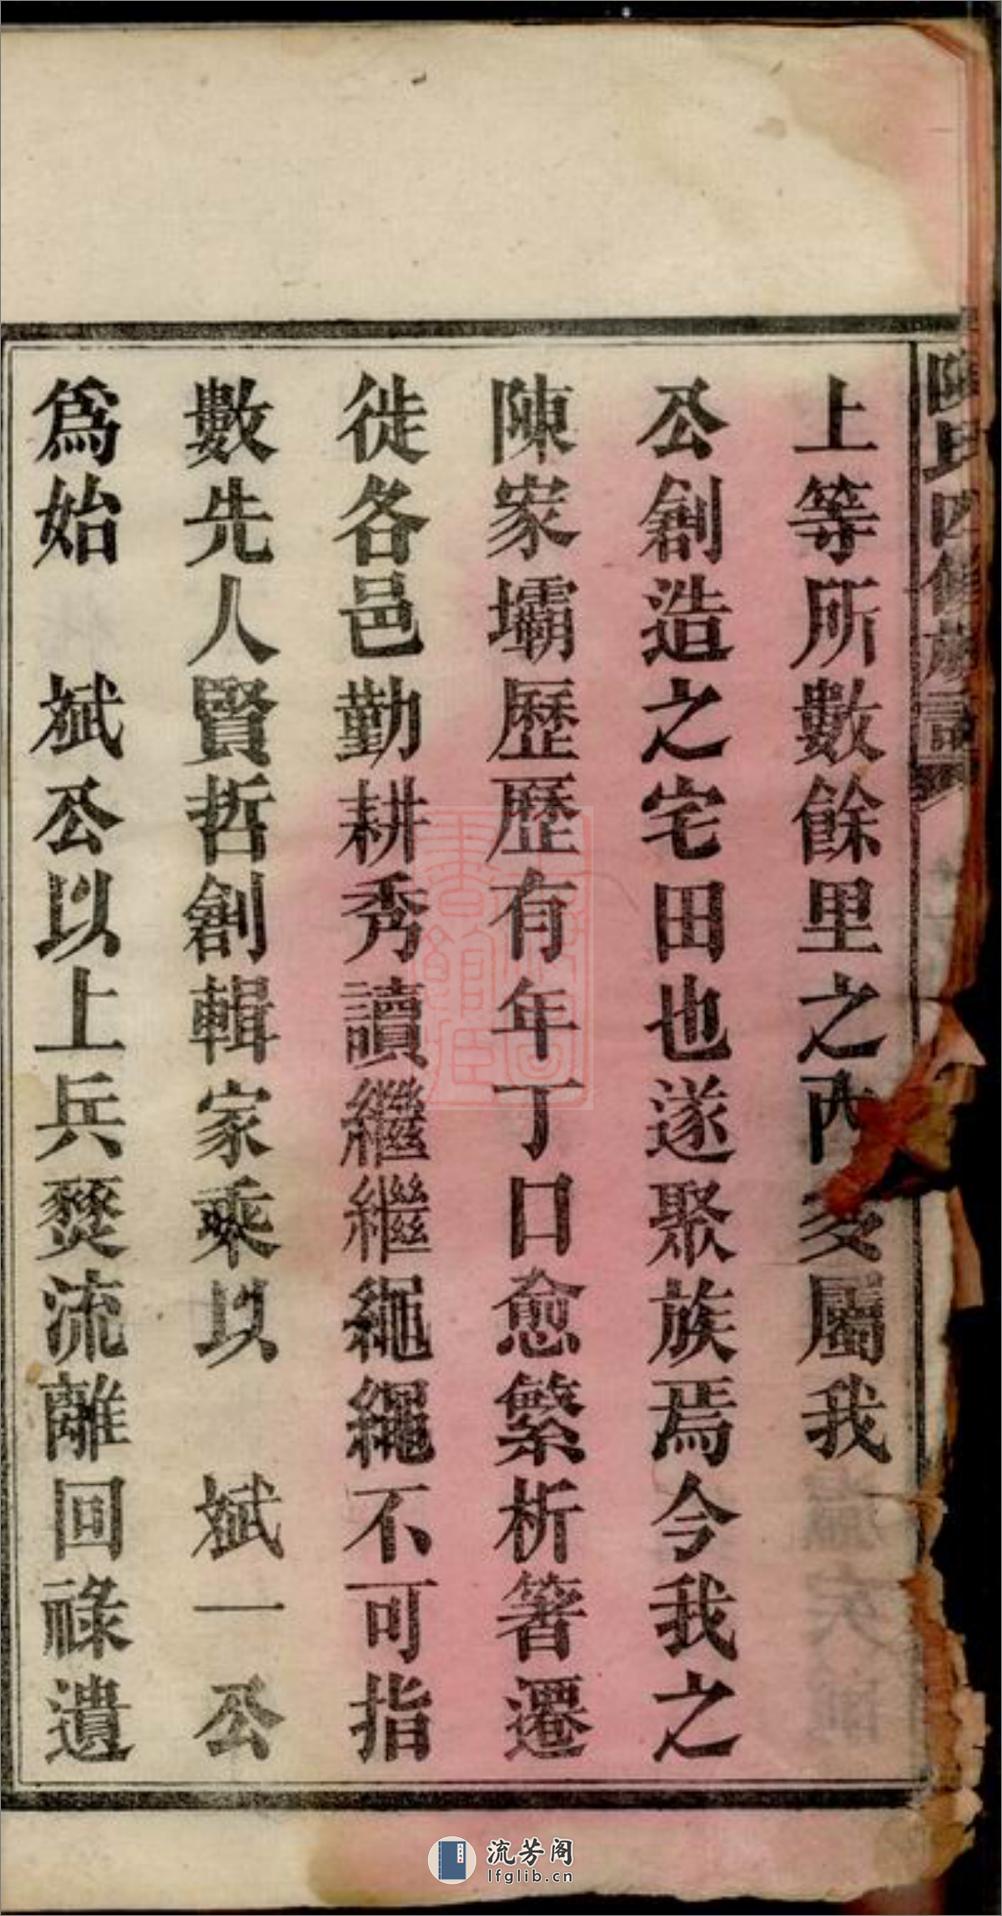 陳氏四修族譜
上等所數餘里之內多屬我
公創造之宅田也遂聚族焉今我之
陳家壩歷歷有年丁口愈繁析箸遷
徙各邑勤耕秀讀繼繼繩繩不可指
數先人賢哲創輯家乘以 斌一公
爲始 斌公以上兵燹流離回祿遺
流芳阁
lfglib.cn